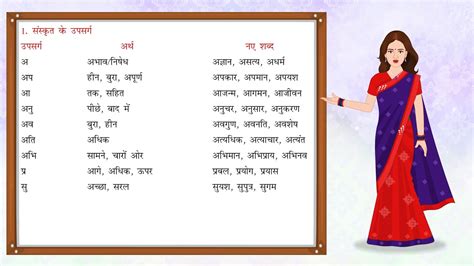 1. संस्कृत के उपसर्ग
उपसर्ग अर्थ नए शब्द
अ अभाव/निषेध अज्ञान, असत्य, अधर्म
अप हीन, बुरा, अपूर्ण अपकार, अपमान, अपयश
आ तक, सहित आजन्म, आगमन, आजीवन
अनु पीछे, बाद में अनुचर, अनुसार, अनुकरण
अव बुरा, हीन अवगुण, अवनति, अवशेष
अति अधिक अत्यधिक, अत्याचार, अत्यंत
अभि सामने, चारों ओर अभिमान, अभिप्राय, अभिनव
प्र आगे, अधिक, ऊपर प्रबल, प्रयोग, प्रयास
सु अच्छा, सरल सुयश, सुपुत्र, सुगम